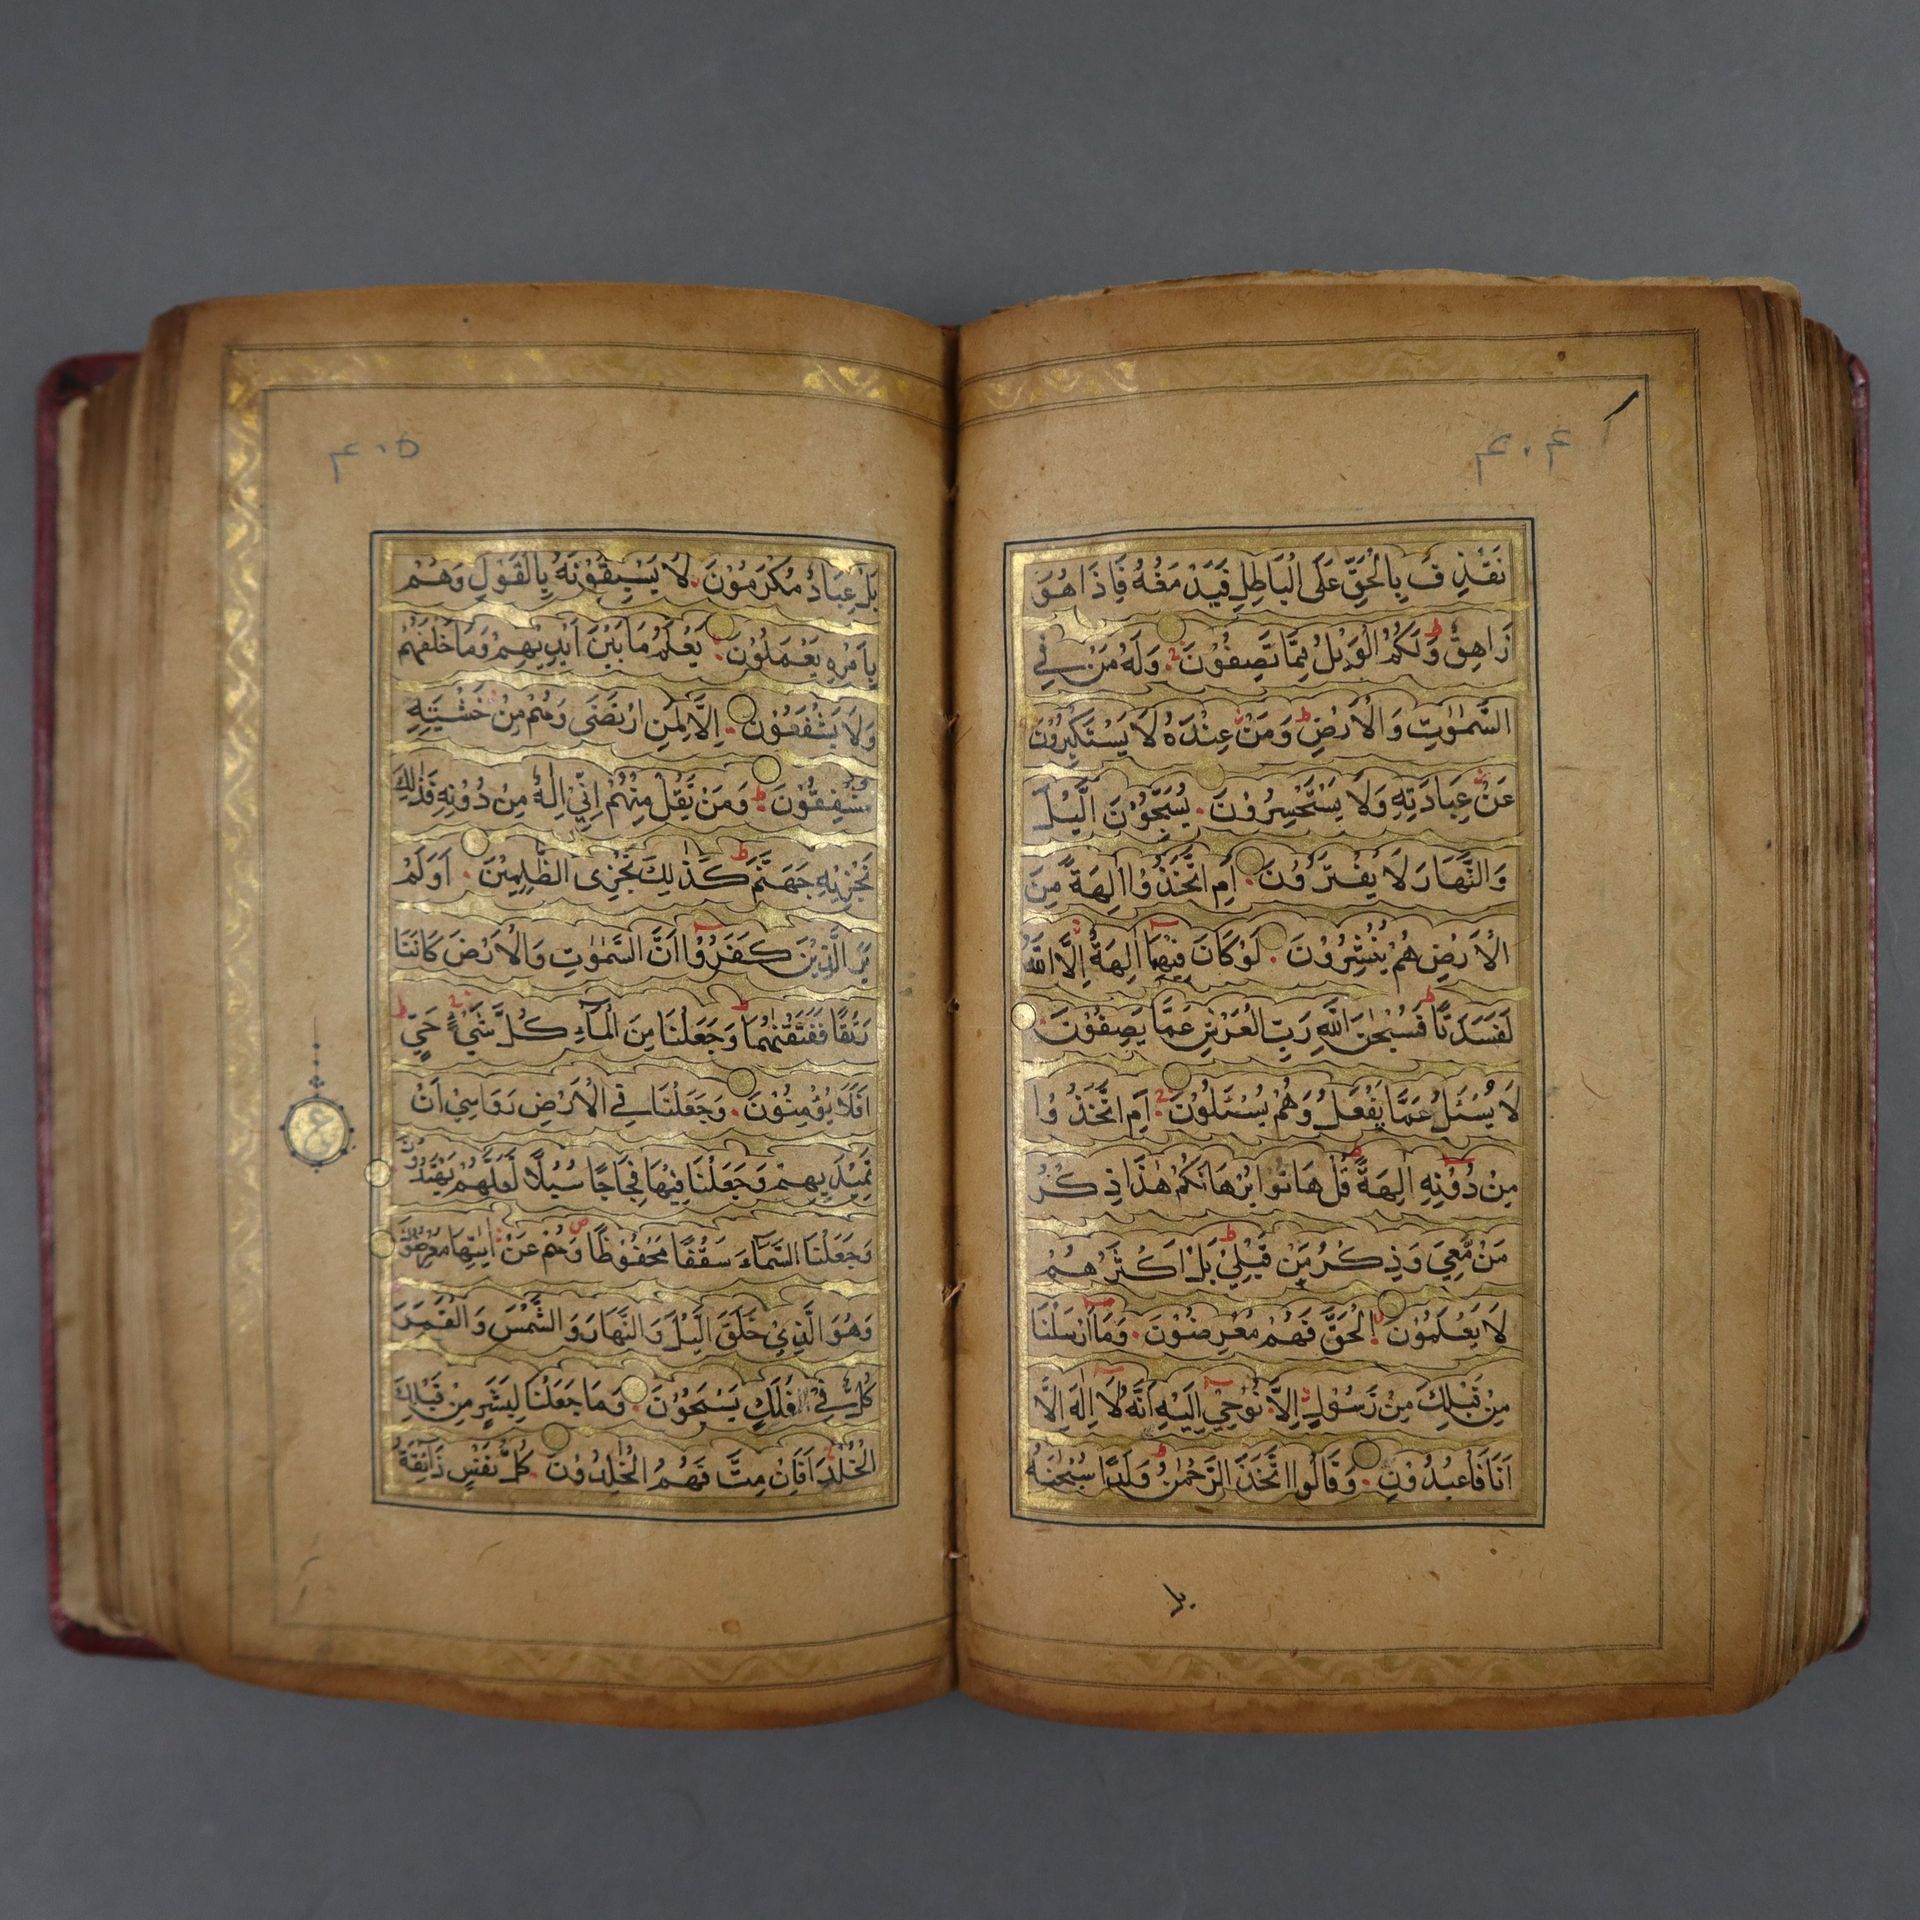 ۴۰۴
نَقْذِفُ بِالْحَقِّ عَلَى الْبَاطِلِ فَيَدْمَغُهُ فَاِذَا هُوَ
زَاهِقٌ وَلَكُمُ الْوَيْلُ مِمَّا تَصِفُوْنَ وَلَهُ مَنْ فِي
السَّمٰوٰتِ وَالْاَرْضِ وَمَنْ عِنْدَهُ لَا يَسْتَكْبِرُوْنَ
عَنْ عِبَادَتِهِ وَلَا يَسْتَحْسِرُوْنَ يُسَبِّحُوْنَ الَّيْلَ
وَالنَّهَارَ لَا يَفْتُرُوْنَ اَمِ اتَّخَذُوْا اٰلِهَةً مِنَ
الْاَرْضِ هُمْ يُنْشِرُوْنَ لَوْ كَانَ فِيْهِمَا اٰلِهَةٌ اِلَّا اللهُ
لَفَسَدَتَا فَسُبْحٰنَ اللهِ رَبِّ الْعَرْشِ عَمَّا يَصِفُوْنَ
لَا يُسْئَلُ عَمَّا يَفْعَلُ وَهُمْ يُسْئَلُوْنَ اَمِ اتَّخَذُوْا
مِنْ دُوْنِهِ اٰلِهَةً قُلْ هَاتُوْا بُرْهَانَكُمْ هٰذَا ذِكْرُ
مَنْ مَّعِيَ وَذِكْرُ مَنْ قَبْلِيْ بَلْ اَكْثَرُهُمْ
لَا يَعْلَمُوْنَ الْحَقَّ فَهُمْ مُعْرِضُوْنَ وَمَا اَرْسَلْنَا
مِنْ قَبْلِكَ مِنْ رَسُوْلٍ اِلَّا نُوْحِيْ اِلَيْهِ اَنَّهُ لَا اِلٰهَ اِلَّا
اَنَا فَاعْبُدُوْنِ وَقَالُوا اتَّخَذَ الرَّحْمٰنُ وَلَدًا سُبْحٰنَهُ
۴۰۵
بَلْ عِبَادٌ مُكْرَمُوْنَ لَا يَسْبِقُوْنَهُ بِالْقَوْلِ وَهُمْ
بِاَمْرِهِ يَعْمَلُوْنَ يَعْلَمُ مَا بَيْنَ اَيْدِيْهِمْ وَمَا خَلْفَهُمْ
وَلَا يَشْفَعُوْنَ اِلَّا لِمَنِ ارْتَضَى وَهُمْ مِنْ خَشْيَتِهِ
مُشْفِقُوْنَ وَمَنْ يَّقُلْ مِنْهُمْ اِنِّيْ اِلٰهٌ مِنْ دُوْنِهِ فَذٰلِكَ
نَجْزِيْهِ جَهَنَّمَ كَذٰلِكَ نَجْزِى الظّٰلِمِيْنَ اَوَلَمْ
يَرَ الَّذِيْنَ كَفَرُوْا اَنَّ السَّمٰوٰتِ وَالْاَرْضَ كَانَتَا
رَتْقًا فَفَتَقْنٰهُمَا وَجَعَلْنَا مِنَ الْمَآءِ كُلَّ شَيْءٍ حَيٍّ
اَفَلَا يُؤْمِنُوْنَ وَجَعَلْنَا فِي الْاَرْضِ رَوَاسِيَ اَنْ
تَمِيْدَ بِهِمْ وَجَعَلْنَا فِيْهَا فِجَاجًا سُبُلًا لَعَلَّهُمْ يَهْتَدُوْنَ
وَجَعَلْنَا السَّمَآءَ سَقْفًا مَحْفُوْظًا وَهُمْ عَنْ اٰيٰتِهَا مُعْرِضُوْنَ
وَهُوَ الَّذِيْ خَلَقَ الَّيْلَ وَالنَّهَارَ وَالشَّمْسَ وَالْقَمَرَ
كُلٌّ فِيْ فَلَكٍ يَسْبَحُوْنَ وَمَا جَعَلْنَا لِبَشَرٍ مِنْ قَبْلِكَ
الْخُلْدَ اَفَاِنْ مِتَّ فَهُمُ الْخٰلِدُوْنَ كُلُّ نَفْسٍ ذَآئِقَةُ
ع